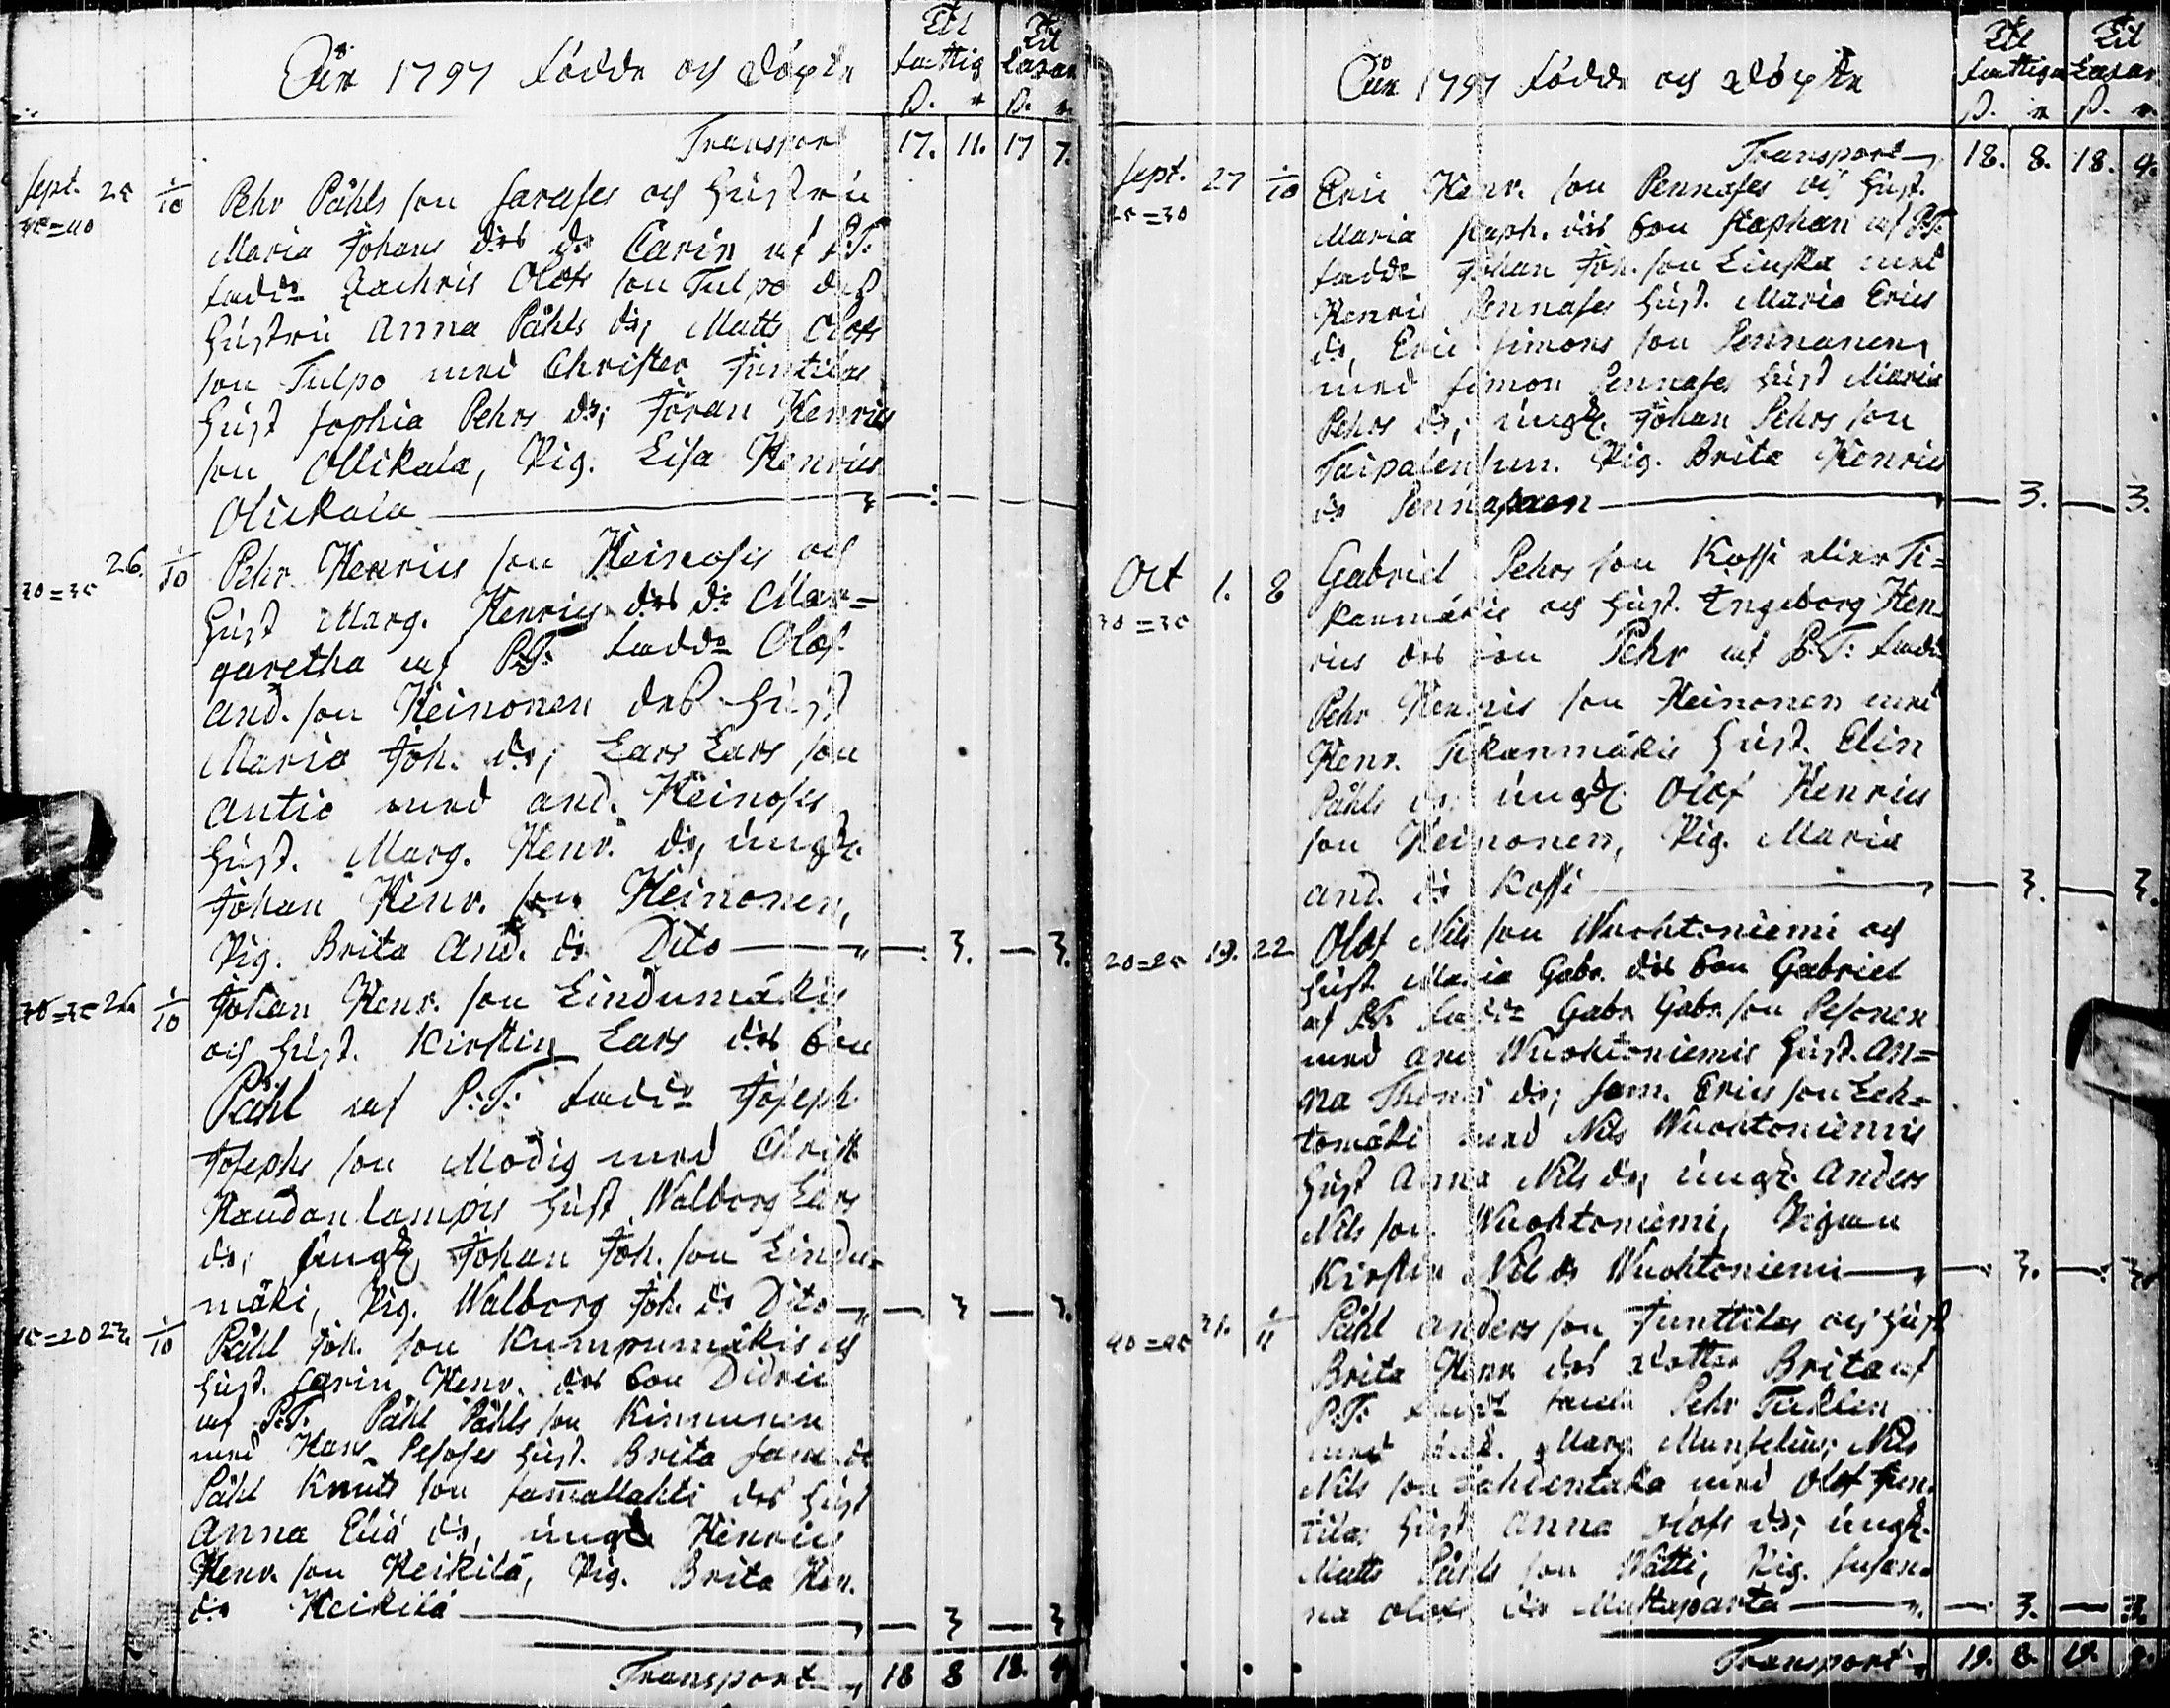 Åhr 1797 födde och döpte
Til fattig
Til Lazar
Transport 17. 11. 17 7.
Sept. 25 1/10 Pehr Påhls son Sarases och hustru
35=40 Maria Johans dr dr Carin af P:T:
fadd: Zachris Olofs son Tulpo dess
hustru Anna Påhls dr; Matts Olofs
son Tulpo med Christer Juntilas
hust Sophia Pehrs dr; Jöran Henrics
son Ollikala, Pig. Lisa Henrics
Ollikala
26. 1/10 Pehr Henrics son Heinoses och
30=35 hust Marg. Henrics dr dr Mar=
garetha af P:T: fadd: Olof
And. son Heinonen dess hust
Maria Joh. dr; Lars Lars son
Antio med And. Heinoses
hust. Marg. Henr. dr, ungk.
Johan Henr. son Heinonen,
Pig. Brita And. dr Dito — 3. — 3.
26 1/10 Johan Henr. son Lindumäkis
och hust. Kirstin Lars dr son
Påhl af P:T: fadd: Joseph
Josephs son Modig med Christ
Haudanlampis hust Walborg Lars
dr; ungk Johan Joh. son Lindu=
mäki, Pig. Walborg Joh. dr Dito — 3 — 3.
15=20 1/10 Påhl Joh. son Kumpumäkis och
hust. Carin Henr. dr son Didric
af P:T: Påhl Påhls son Kinnunen
med Hans Pesoses hust. Brita dr
Påhl Knuts son Sam̄allahti dess hust
Anna Eliæ dr, ungk Henrics
Henr. son Heikilä, Pig. Brita Hen.
dr Heikilä — 3 — 3
Transport 18 8 18. 4
Åhr 1797 födde och döpte
Til fattiga
Til Lazar
Transport 18. 8. 18. 4.
Sept. 27 1/10 Eric Henr. son Pennases och hust.
25=30 Maria Staph. dr son Staphan af P:T:
fadd: Johan Joh. son Linska med
Henric Pennases hust. Maria Erics
dr, Eric Simons son Pennanen,
med Simon Pennases hust Maria
Pehrs dr; ungk. Johan Pehrs son
Taipalensuu. Pig. Brita Henrics
dr Pennanen — 3. — 3.
Oct 1. 8 Gabriel Pehrs son Kossi eller Ti=
30=35 kanmäkis och hust. Ingeborg Hen=
rics dr son Pehr af P:T: fadd:
Pehr Henrics son Heinonen med
Henr. Tikanmäkis hust. Elin
Påhls dr; ungk Olof Henrics
son Heinonen, Pig. Maria
And. dr Kossi — 3. — 3.
20=25 19. 22 Olof Nils son Wuohtoniemi och
hust Maria Gabr. dr son Gabriel
af P:T: fadd: Gabr. Gabr. son Pesonen
med And Wuohtoniemis hust. An=
na Thoms dr; Sam. Erics son Leh=
tomäki med Nils Wuohtoniemis
hust Anna Nils dr; ungk. Anders
Nils son Wuohtoniemi, Pigan
Kirstin Nils dr Wuohtoniemi — 3. — 3.
40=45 31. 1/11 Påhl Anders son Junttilas och hust
Brita Henr. dr dotter Brita af
P:T: fadd: Pehr Tuklen
med Marg. Munselius; Nils
Nils son Lahdentaka med Olof Jun=
tilas hust Anna Olofs dr; ungk.
Matts Påhls son Wätti, Pig. Susan=
na Olofs dr Mustaparta — 3. — 3.
Transport 19. 8. 19.